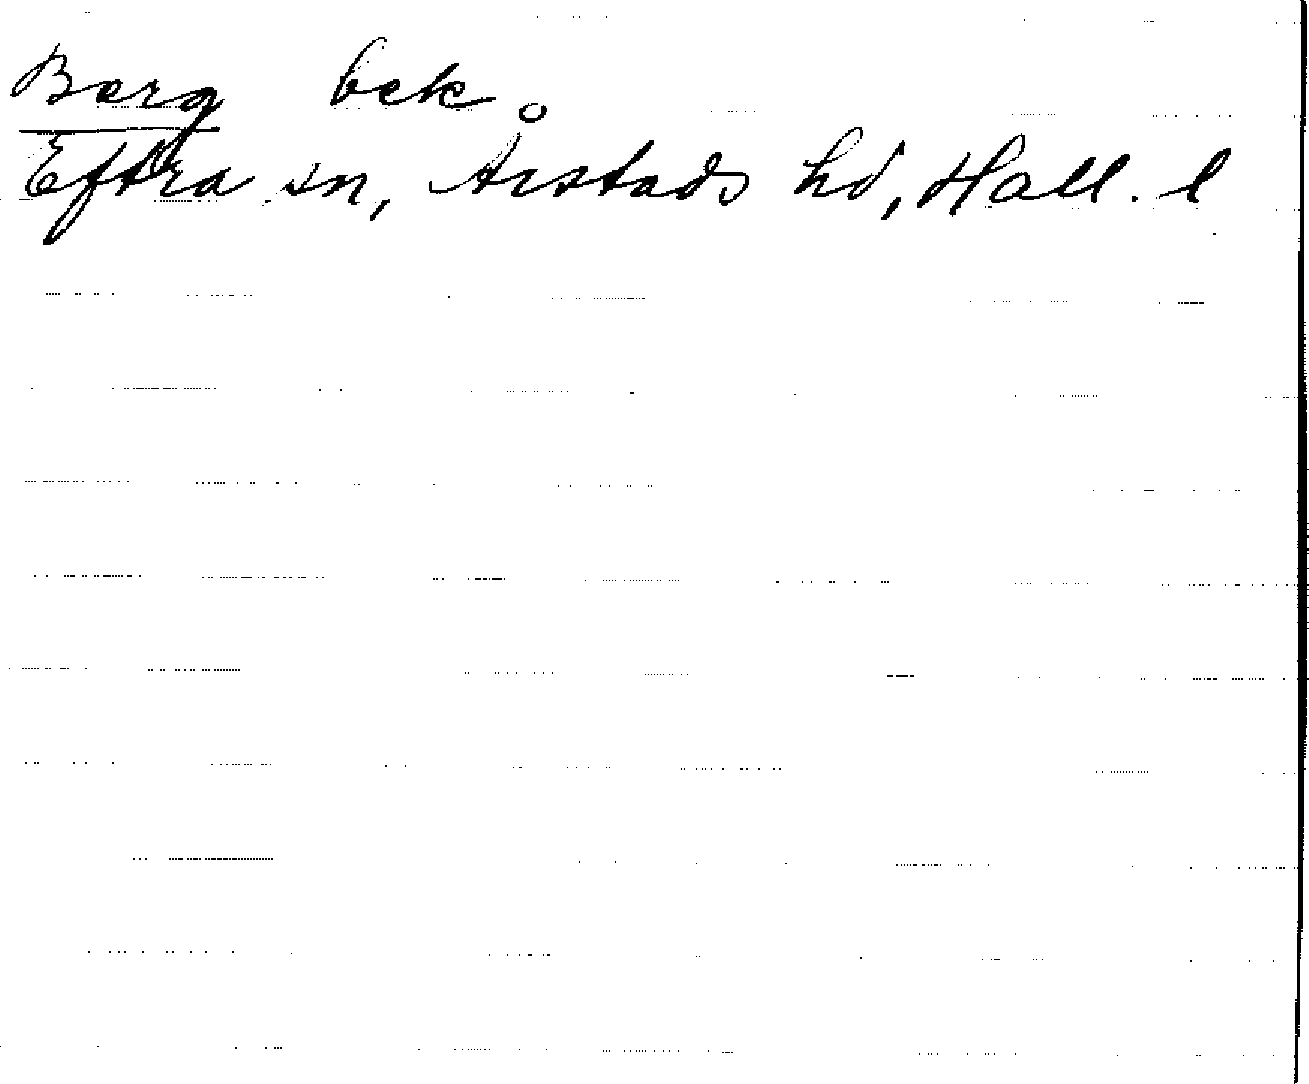 Borg bek.
Eftra sn, Årstads hd, Hall. l